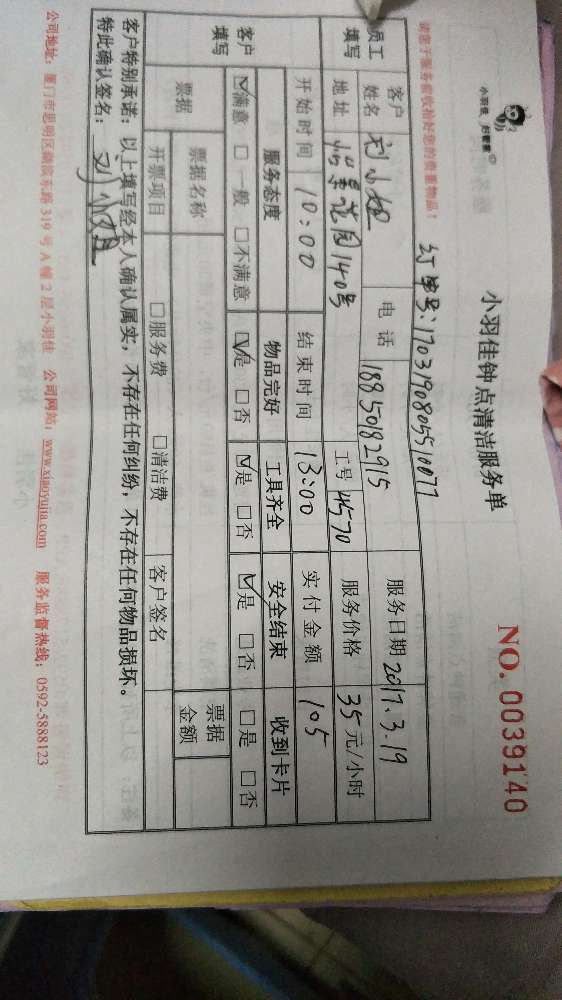 小羽佳 好管家
小羽佳钟点清洁服务单
NO. 0039140
请您于服务前收拾好您的贵重物品!
订单号:1703190805510077
员工填写
客户姓名 刘小姐 电话 18850182915 服务日期 2017.3.19
地址 怡景花园140号 工号 4570 服务价格 35元/小时
开始时间 10:00 结束时间 13:00 实付金额 105
客户填写
服务态度 物品完好 工具齐全 安全结束 收到卡片
☑满意 □一般 □不满意 ☑是 □否 ☑是 □否 ☑是 □否 □是 □否
票据 票据名称 票据金额
开票项目 □服务费 □清洁费 客户签名
客户特别承诺:以上填写经本人确认属实,不存在任何纠纷,不存在任何物品损坏。
特此确认签名: 刘小姐
公司地址:厦门市思明区 东路319号A幢2层小羽佳 公司网站:www.xiaoyujia.com 服务监督热线:0592-5888123